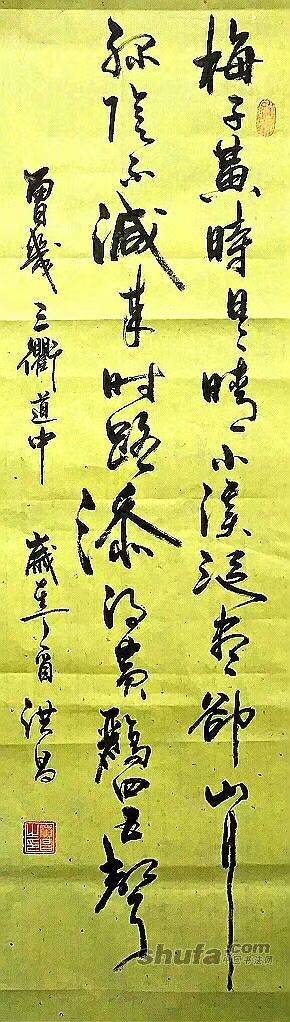 梅子黃時日日晴小溪泛盡卻山行
綠陰不減來时路添得黃鸝四五聲
曾幾三衢道中 歲在丁酉 洪昌
shufa.com
中国书法网